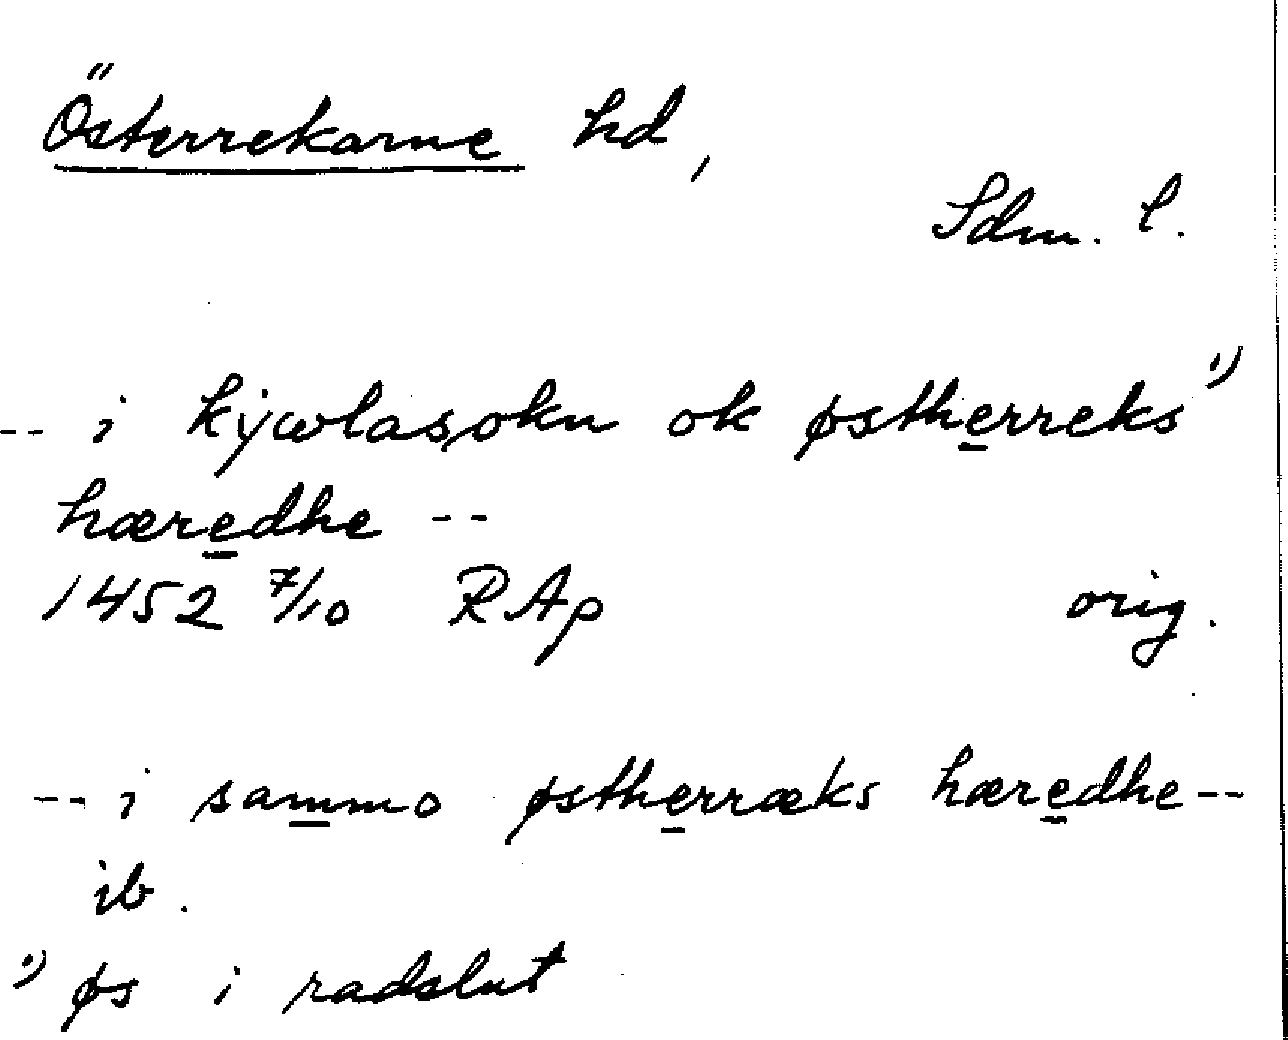 Österrekarne hd,
Sdm. l.
-- i kÿwlasokn ok østherreks ¹)
hæredhe --
1452 7/10 RAp orig.
-- i sammo østherræks hæredhe --
ib.
¹) øs i radslut